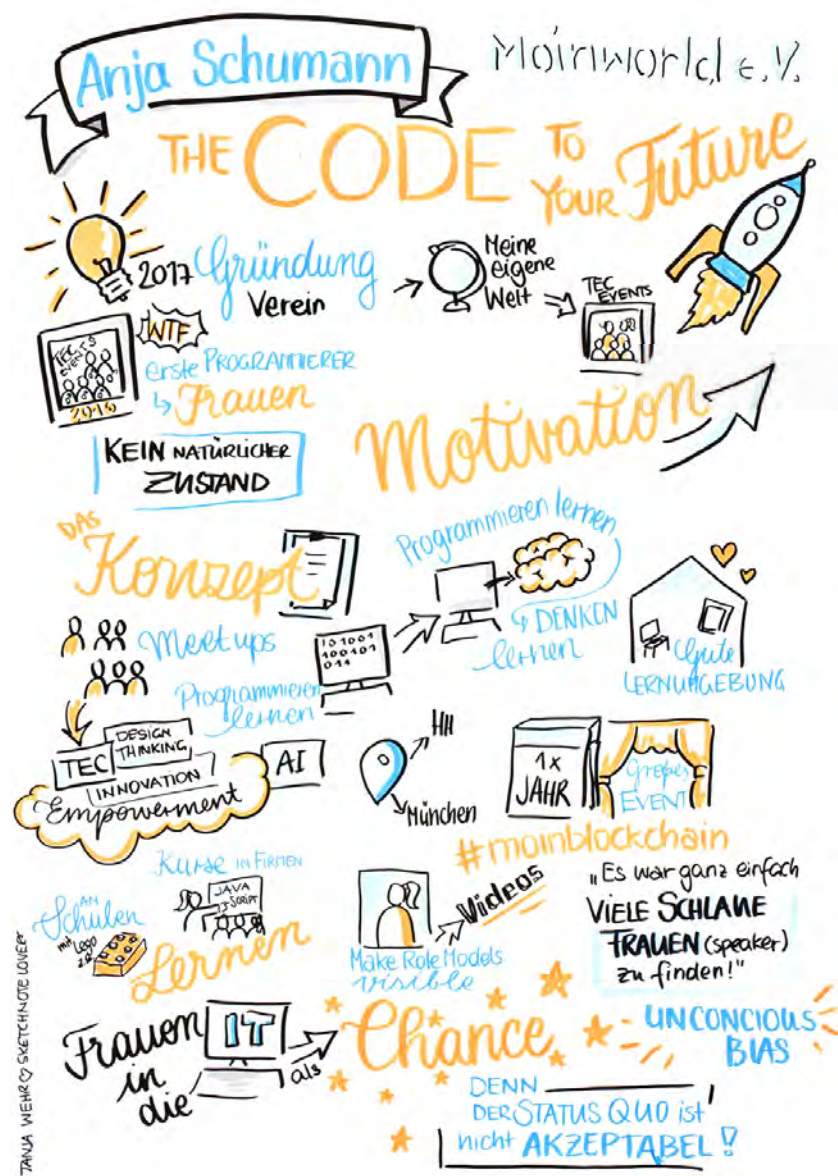 Anja Schumann
Moinworld e.V.
THE CODE TO
YOUR Future
2017 Gründung
Verein
Meine
eigene
Welt
TEC
EVENTS
TEC
EVENTS
2016
WTF
erste PROGRAMMIERER
↳ Frauen
KEIN NATÜRLICHER
ZUSTAND
Motivation
DAS
Konzept
Meetups
Programmieren
lernen
101001
100101
011
Programmieren lernen
↳ DENKEN
lernen
Gute
LERNUMGEBUNG
TEC
DESIGN
THINKING
INNOVATION
AI
Empowerment
HH
München
1x
JAHR
Großes
EVENT
#moinblockchain
Kurse IN FIRMEN
JAVA
SCRIPT
AN
Schulen
mit Lego
z.B.
Lernen
Videos
Make Role Models
visible
„Es war ganz einfach
VIELE SCHLAUE
FRAUEN (speaker)
zu finden!"
Frauen
in
die
IT
als
Chance
UNCONCIOUS
BIAS
DENN
DER STATUS QUO ist
nicht AKZEPTABEL!
TANJA WEHR ♡ SKETCHNOTELOVERS